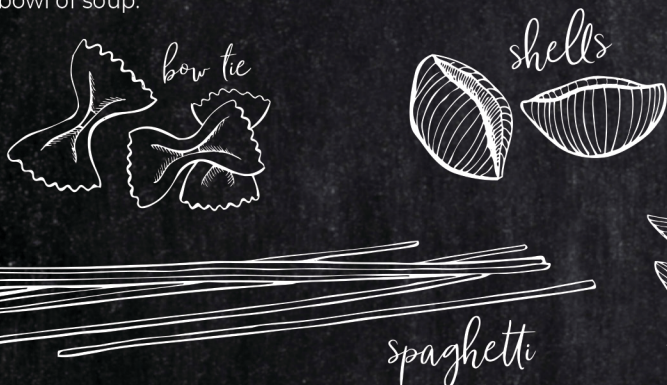 bowl of soup.
bow tie
shells
spaghetti